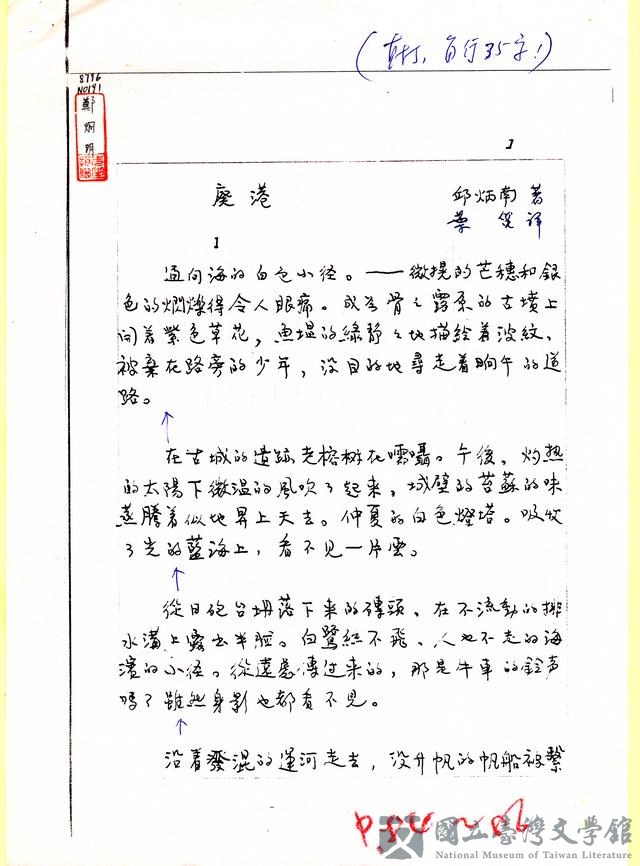 (直打，每行35字！)
8796
NO191
鄭烱明
1
廢港
邱炳南 著
葉笛 译
1
通向海的白色小径。——微提的芒穗和銀
色的燜爍得令人眼痛。成为骨々露系的古墳上
開着紫色草花，魚塭的綠静々地描绘着波紋、
被棄在路旁的少年，没目的地尋走着晌午的道
路。
在古城的遗跡老榕树在嚅囁。午後，灼热
的太陽下微温的風吹了起来，城壁的苔蘇的味
蒸騰着似地昇上天去。仲夏的白色燈塔。吸收
了光的藍海上，看不見一片雲。
從日砲台坍落下来的磚頭、在不流動的排
水溝上露出半脸。白鷺絲不飛、人也不走的海
濱的小径。從遠處傳过来的，那是牛車的鈴声
吗？雖然身影也都看不見。
沿着發混的運河走去，没升帆的帆船被繫
國立臺灣文學館
National Museum of Taiwan Literature